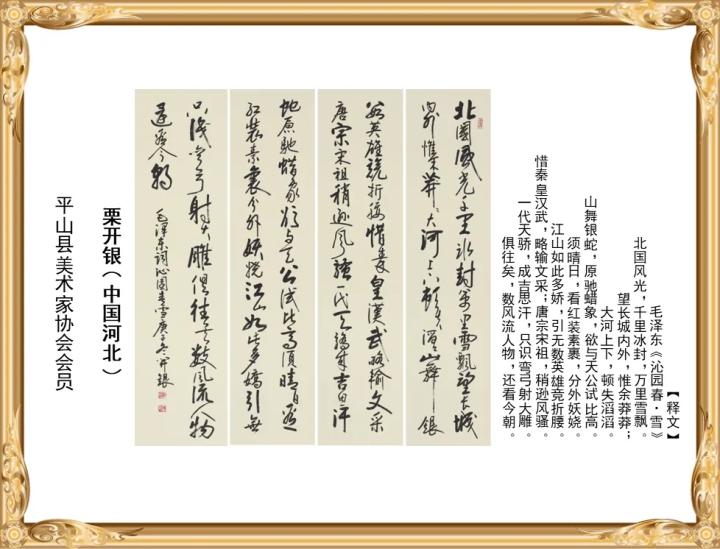 【释文】
毛泽东《沁园春·雪》
北国风光，千里冰封，万里雪飘。
望长城内外，惟余莽莽；
大河上下，顿失滔滔。
山舞银蛇，原驰蜡象，欲与天公试比高。
须晴日，看红装素裹，分外妖娆。
江山如此多娇，引无数英雄竞折腰。
惜秦皇汉武，略输文采；唐宗宋祖，稍逊风骚。
一代天骄，成吉思汗，只识弯弓射大雕。
俱往矣，数风流人物，还看今朝。
北國風光千里冰封萬里雪飄望長城
內外惟余莽莽大河上下頓失滔滔山舞銀
數英雄競折腰惜秦皇漢武略輸文采
唐宗宋祖稍遜風騷一代天驕成吉思汗
蛇原馳蜡象欲與天公試比高須晴日看
紅裝素裹分外妖嬈江山如此多嬌引無
只識彎弓射大雕俱往矣數風流人物
還看今朝
毛澤東詞沁園春雪庚子冬開銀
栗开银（中国河北）
平山县美术家协会会员